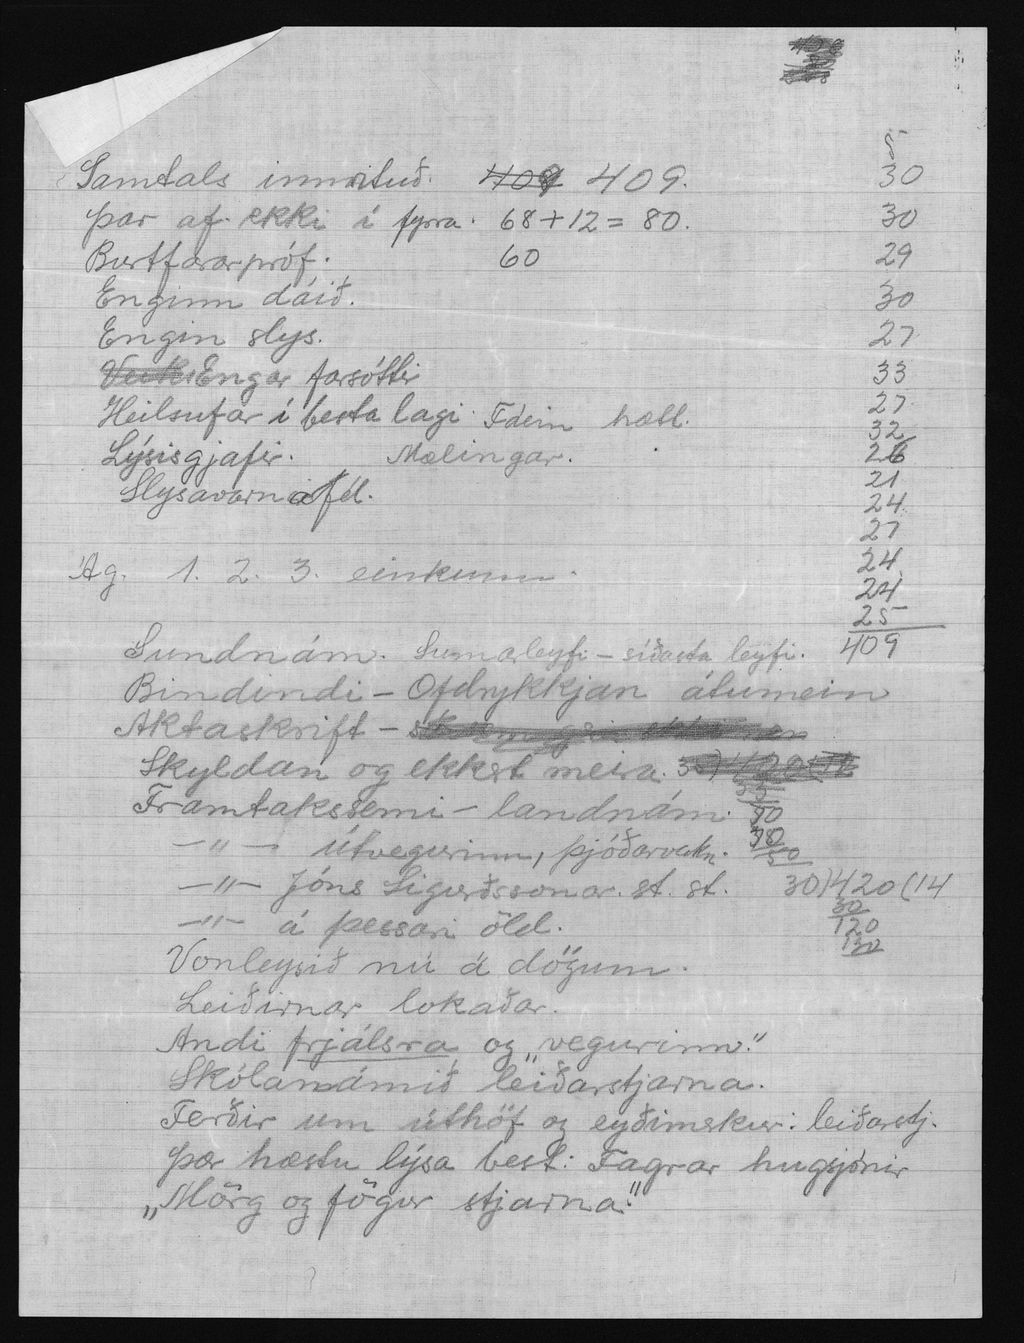 Samtals innrituð. 409.
5
30
Þar af ekki í fyrra. 68+12=80.
30
Burtfararpróf. 60
29
Enginn dáið.
30
Engin slys.
27
Engar farsóttir
33
Heilsufar í besta lagi. Fáein hætt.
27
32
Lýsisgjafir. Mælingar.
26
21
Slysavarnafél.
24
27
Ág. 1. 2. 3. einkunn.
24
24
25
409
Sundnám. Sumarleyfi – síðasta leyfi.
Bindindi – Ofdrykkjan átumein
Aktaskrift –
Skyldan og ekkert meira.
Framtaksemi – landnám.
–"– útvegurinn, þjóðarvakn.
–"– Jóns Sigurðssonar. st. st. 30)420(14
30
120
120
–"– á þessari öld.
Vonleysið nú á dögum.
Leiðirnar lokaðar.
Andi frjálsra og „vegurinn."
Skólanámið leiðarstjarna.
Ferðir um úthöf og eyðimerkur: leiðarstj.
Þær hæstu lýsa best: Fagrar hugsjónir
„Mörg og fögur stjarna."